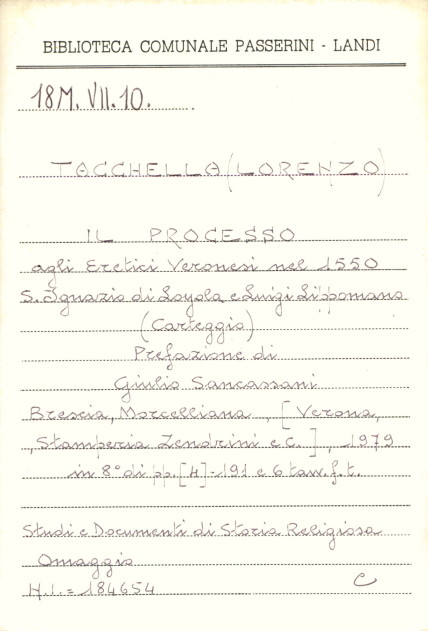 BIBLIOTECA COMUNALE PASSERINI - LANDI
18M. VII. 10.
TACCHELLA (LORENZO)
IL PROCESSO
agli Eretici Veronesi nel 1550
S. Ignazio di Loyola e Luigi Lippomano
(Carteggio)
Prefazione di
Giulio Sancassani
Brescia, Morcelliana, [Verona,
, Stamperia Zendrini e C.], 1979
in 8° di pp. [4]-191 e 6 tavv. f. t.
Studi e Documenti di Storia Religiosa
Omaggio
H.I. = 184654 C